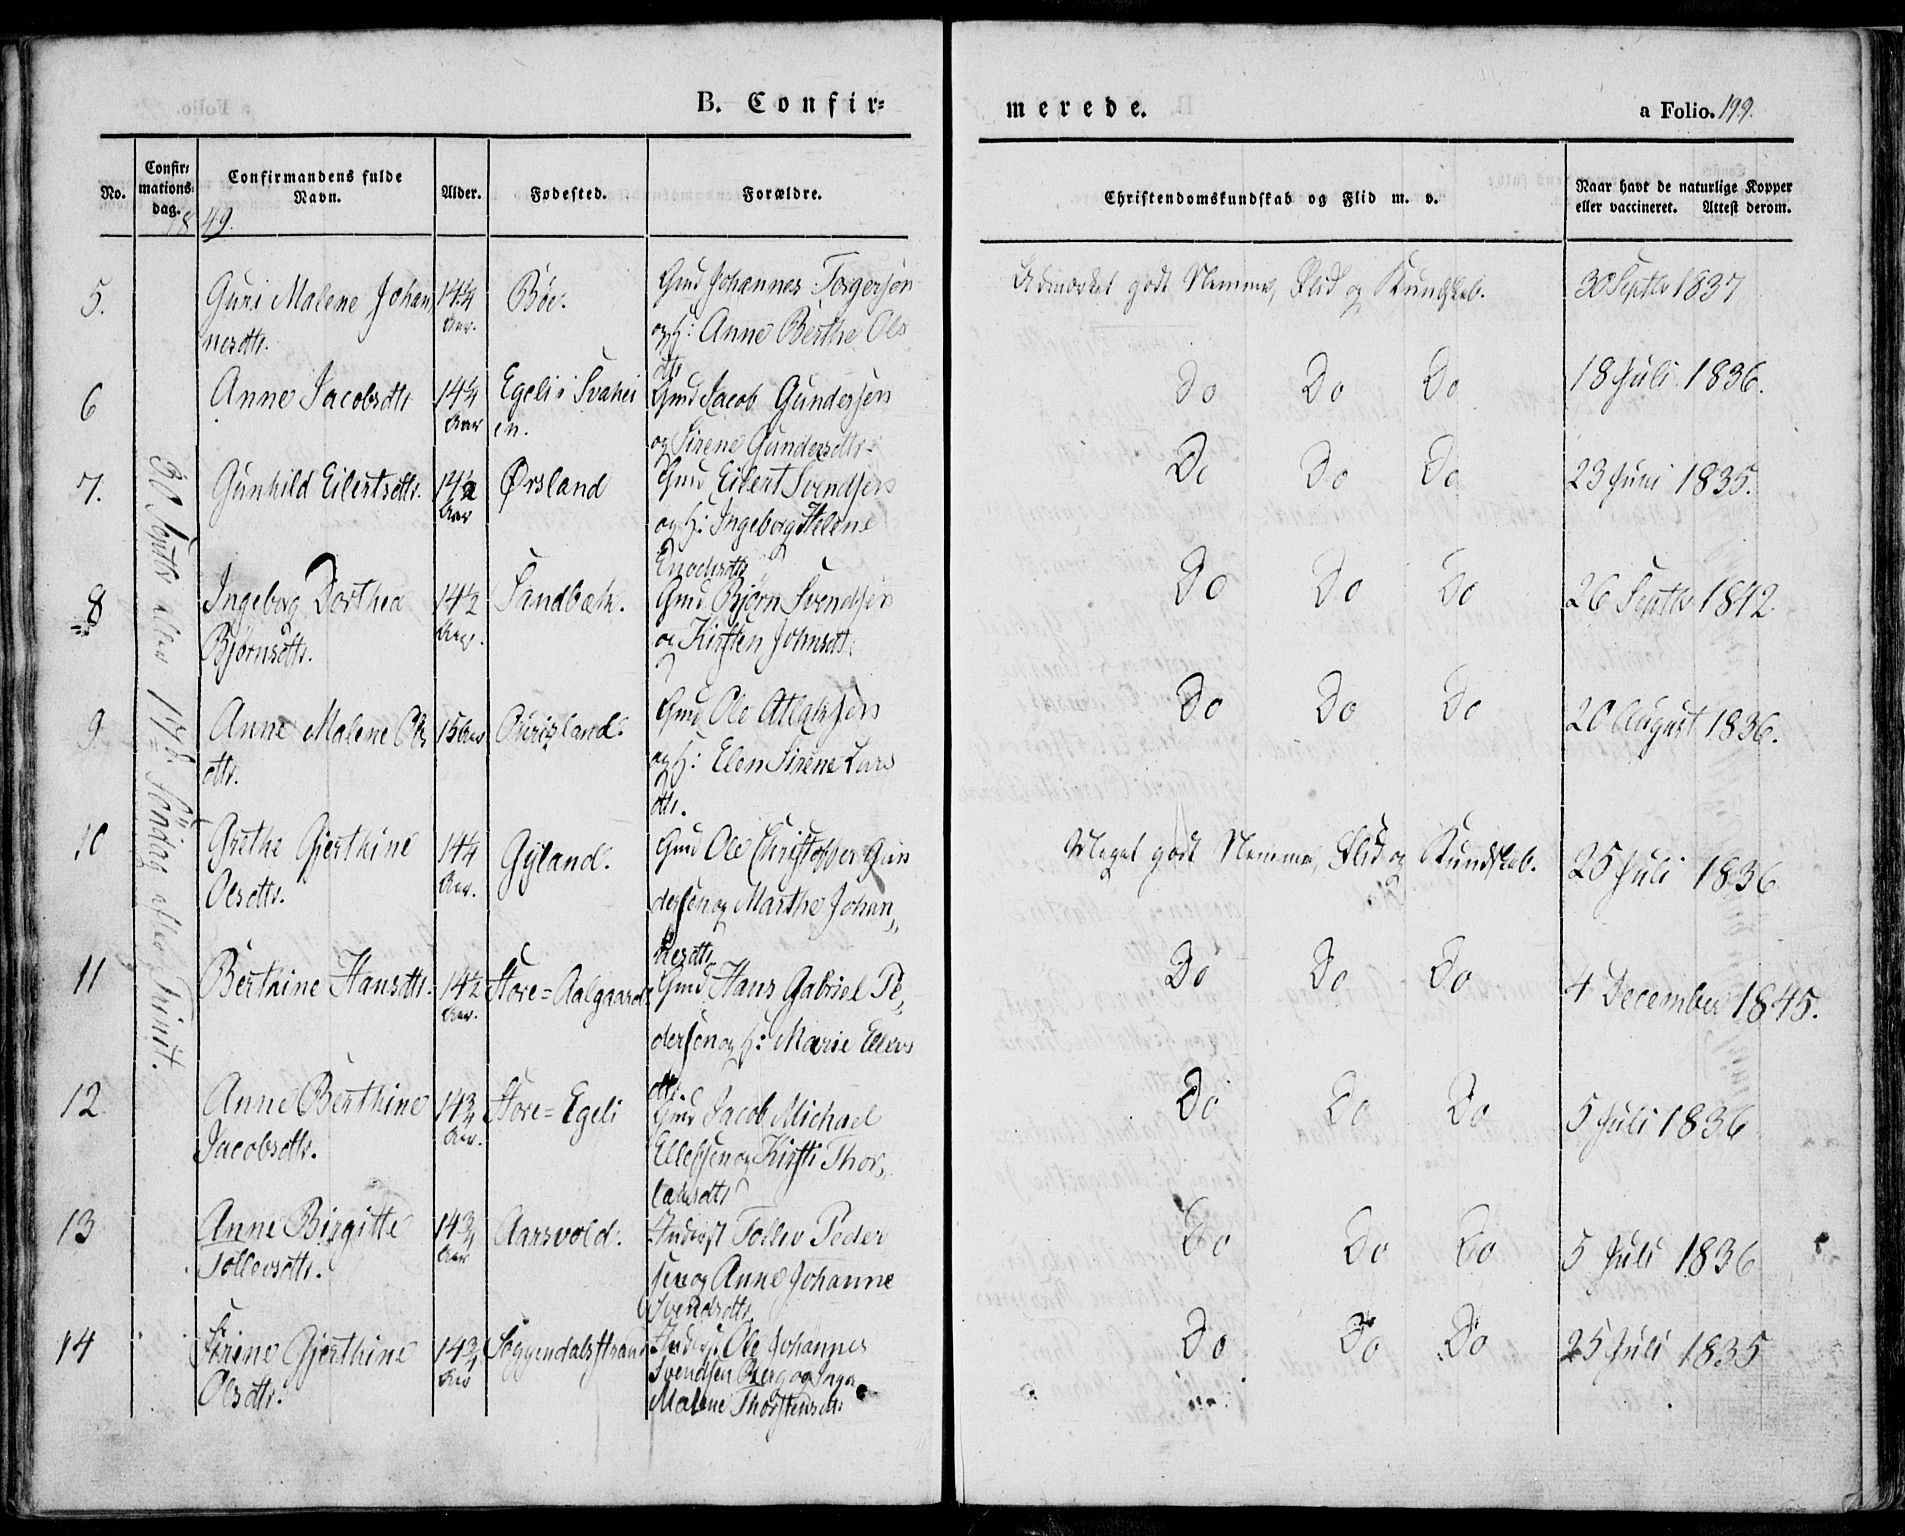 B. Confir=
merede.
a Folio. 199.
No.
Confir=
mations=
dag.
Confirmandens fulde
Navn.
Alder.
Fødested.
Forældre.
Christendomskundskab og Flid m. v.
Naar havt de naturlige Kopper
eller vaccineret. Attest derom.
1849.
30 Septbr eller 17de Søndag efter Trinit.
5.
Guri Malene Johan
nesdtr.
14¼
Aar.
Bøe.
Gmd Johannes Torgersen
og H: Anne Berthe Ols
dtr
Udmærket godt Nemme, Flid og Kundskab.
30 Septbr 1837
6
Anne Jacobsdtr
14¼
Aar
Egeli i Svahei
en.
Gmd Jacob Gundersen
og Sirene Gundersdtr.
Do Do Do
18 Juli 1836.
7.
Gunhild Eilertsdtr.
14½
Aar
Ørsland
Gmd Eilert Svendsen
og H: Ingeborg Helene
Enochsdtr
Do Do Do
23 Juni 1835.
8
Ingeborg Dorthea
Bjørnsdtr.
14½
Aar.
Sandbæk.
Gmd Bjørn Svendsen
og Kirsten Johnsdt.
Do Do Do
26 Septbr 1842.
9
Anne Malene Ols
dtr.
15 Aar
Øurisland.
Gmd Ole Atlaksen
og H: Elen Sirene Lars
dtr.
Do Do Do
20 August 1836.
10
Grethe Gjerthine
Olsdtr.
14¼
Aar.
Gyland.
Gmd Ole Christoffer Gun
dersen og Marthe Johan„
nesdtr
Meget godt Nemme, Flid og Kundskab.
25 Juli 1836
11
Berthine Hansdtr.
14½
Aar.
Store=Aalgaard.
Gmd Hans Gabriel Pe„
dersen og H: Marie Ellevs
dtr.
Do Do Do
4 December 1845.
12
Anne Berthine
Jacobsdtr.
14¾
Aar.
Store=Egeli
Gmd Jacob Michael
Ellefsen og Kirsti Thor„
laksdtr
Do Do Do
5 Juli 1836
13
Anne Birgitte
Tollevsdtr.
14¾
Aar
Aarsvold.
Inderst Tollev Peder
sen og Anne Johanne
Svendsdtr
Do Do Do
5 Juli 1836
14
Sirine Gjerthine
Olsdtr.
14¾
Aar
Soggendalsstrand
Inderst Ole Johannes
Svendsen Berg og Inger
Malene Thorstensdtr
Do Do Do
25 Juli 1835